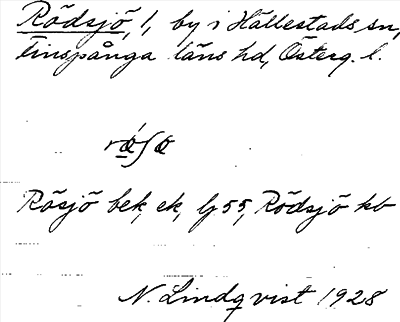 Rödsjö, 1, by i Hällestads sn,
Finspånga läns hd, Österg. l.
Rösjö bek, ek, lj 55, Rödsjö kb
N. Lindqvist 1928